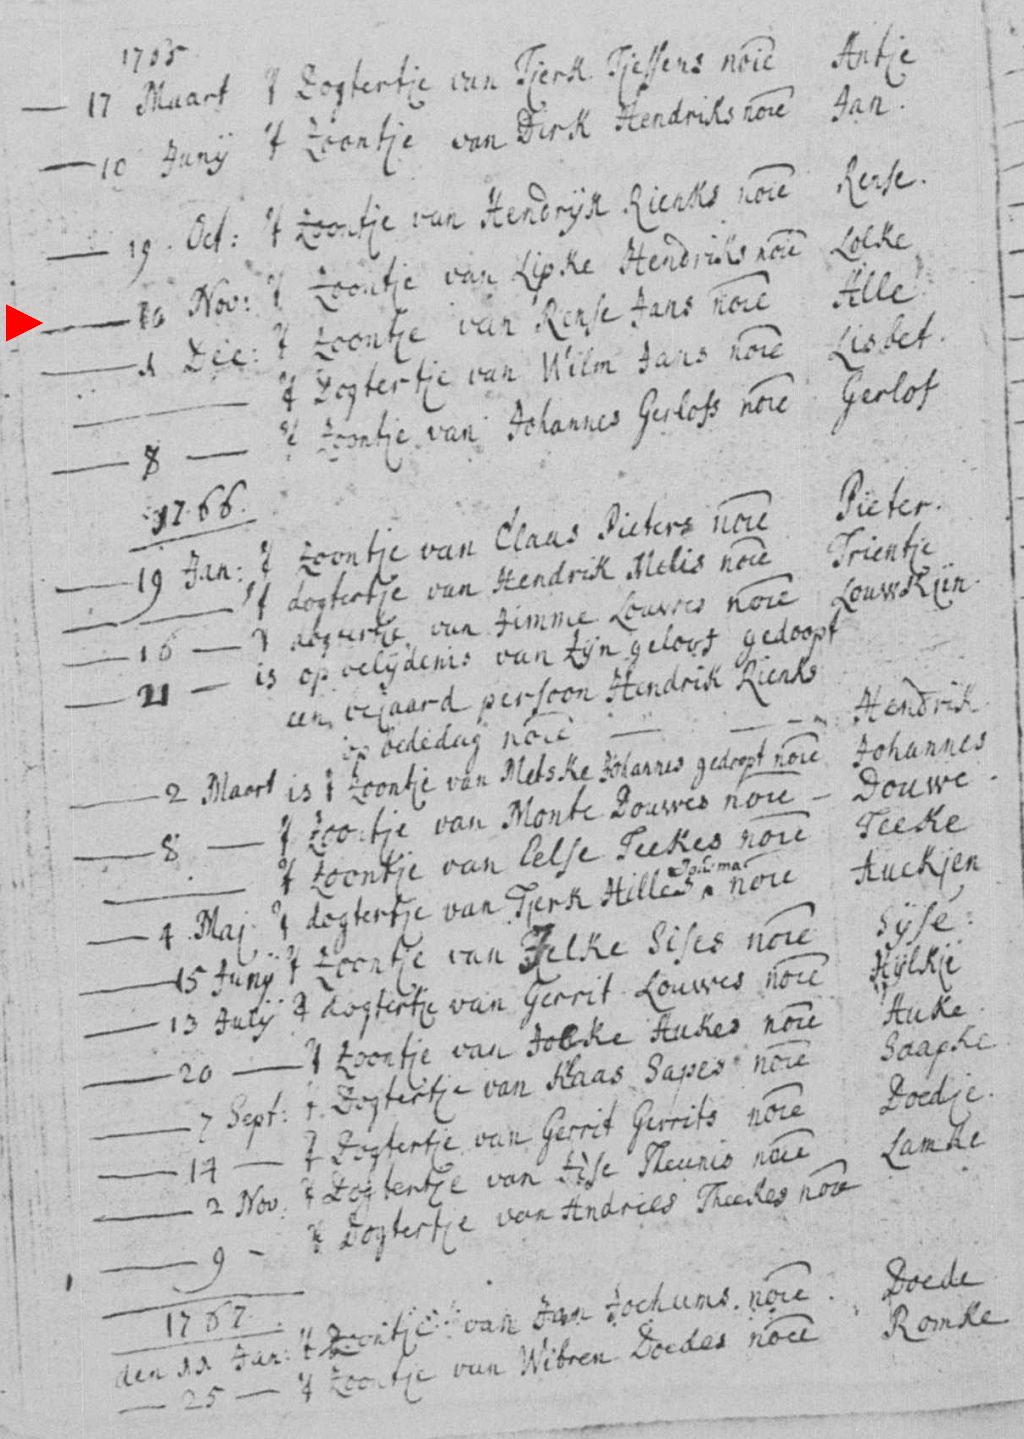 1765
— 17 Maart 't Dogtertje van Tjerk Tjessens noie Antje
— 10 Junij 't Zoontje van Dirk Hendriks noie Jan.
— 19. Oct: 't Zoontje van Hendrijk Rienks noie Rense.
— 10 Nov: 't Zoontje van Lipke Hendriks noie Lolke
— 1 Dec: 't Zoontje van Rense Jans noie Alle
— 't Dogtertje van Wilm Jans noie Lisbet.
— 8 — 't Zoontje van Johannes Gerlofs noie Gerlof
1766.
— 19 Jan: 't Zoontje van Claas Pieters noie Pieter.
— 't dogtertje van Hendrik Melis noie Trientje
— 16 — 't dogtertje van Jimme Louwres noie Louwskjin.
— 21 — is op belijdenis van zijn geloof gedoopt
een bejaard persoon Hendrik Rienks
op bededag noie — — Hendrik
— 2 Maart is 't Zoontje van Metske Johannes gedoopt noie Johannes
— 8 — 't Zoontje van Monte Douwes noie — Douwe.
— 't Zoontje van Eelse Teekes noie Teeke
— 4 Maj 't dogtertje van Tjerk Hilles noie Auckjen
— 15 Junij 't Zoontje van Jelke Sises noie Sijse:
— 13 Julij 't dogtertje van Gerrit Louwes noie Hijlkje
— 20 — 't Zoontje van Jolke Aukes noie Auke
— 7 Sept: 't Dogtertje van Klaas Sapes noie Saapke
— 14 — 't Dogtertje van Gerrit Gerrits noie Doedje.
— 2 Nov: 't Dogtertje van Theunis noie Lamke
— 9 — 't Dogtertje van Andries Theekes noie
1767.
den 11 Jan: 't Zoontje van Jan Jochums. noie. Doede
— 25 — 't Zoontje van Wibren Doedes noie Romke